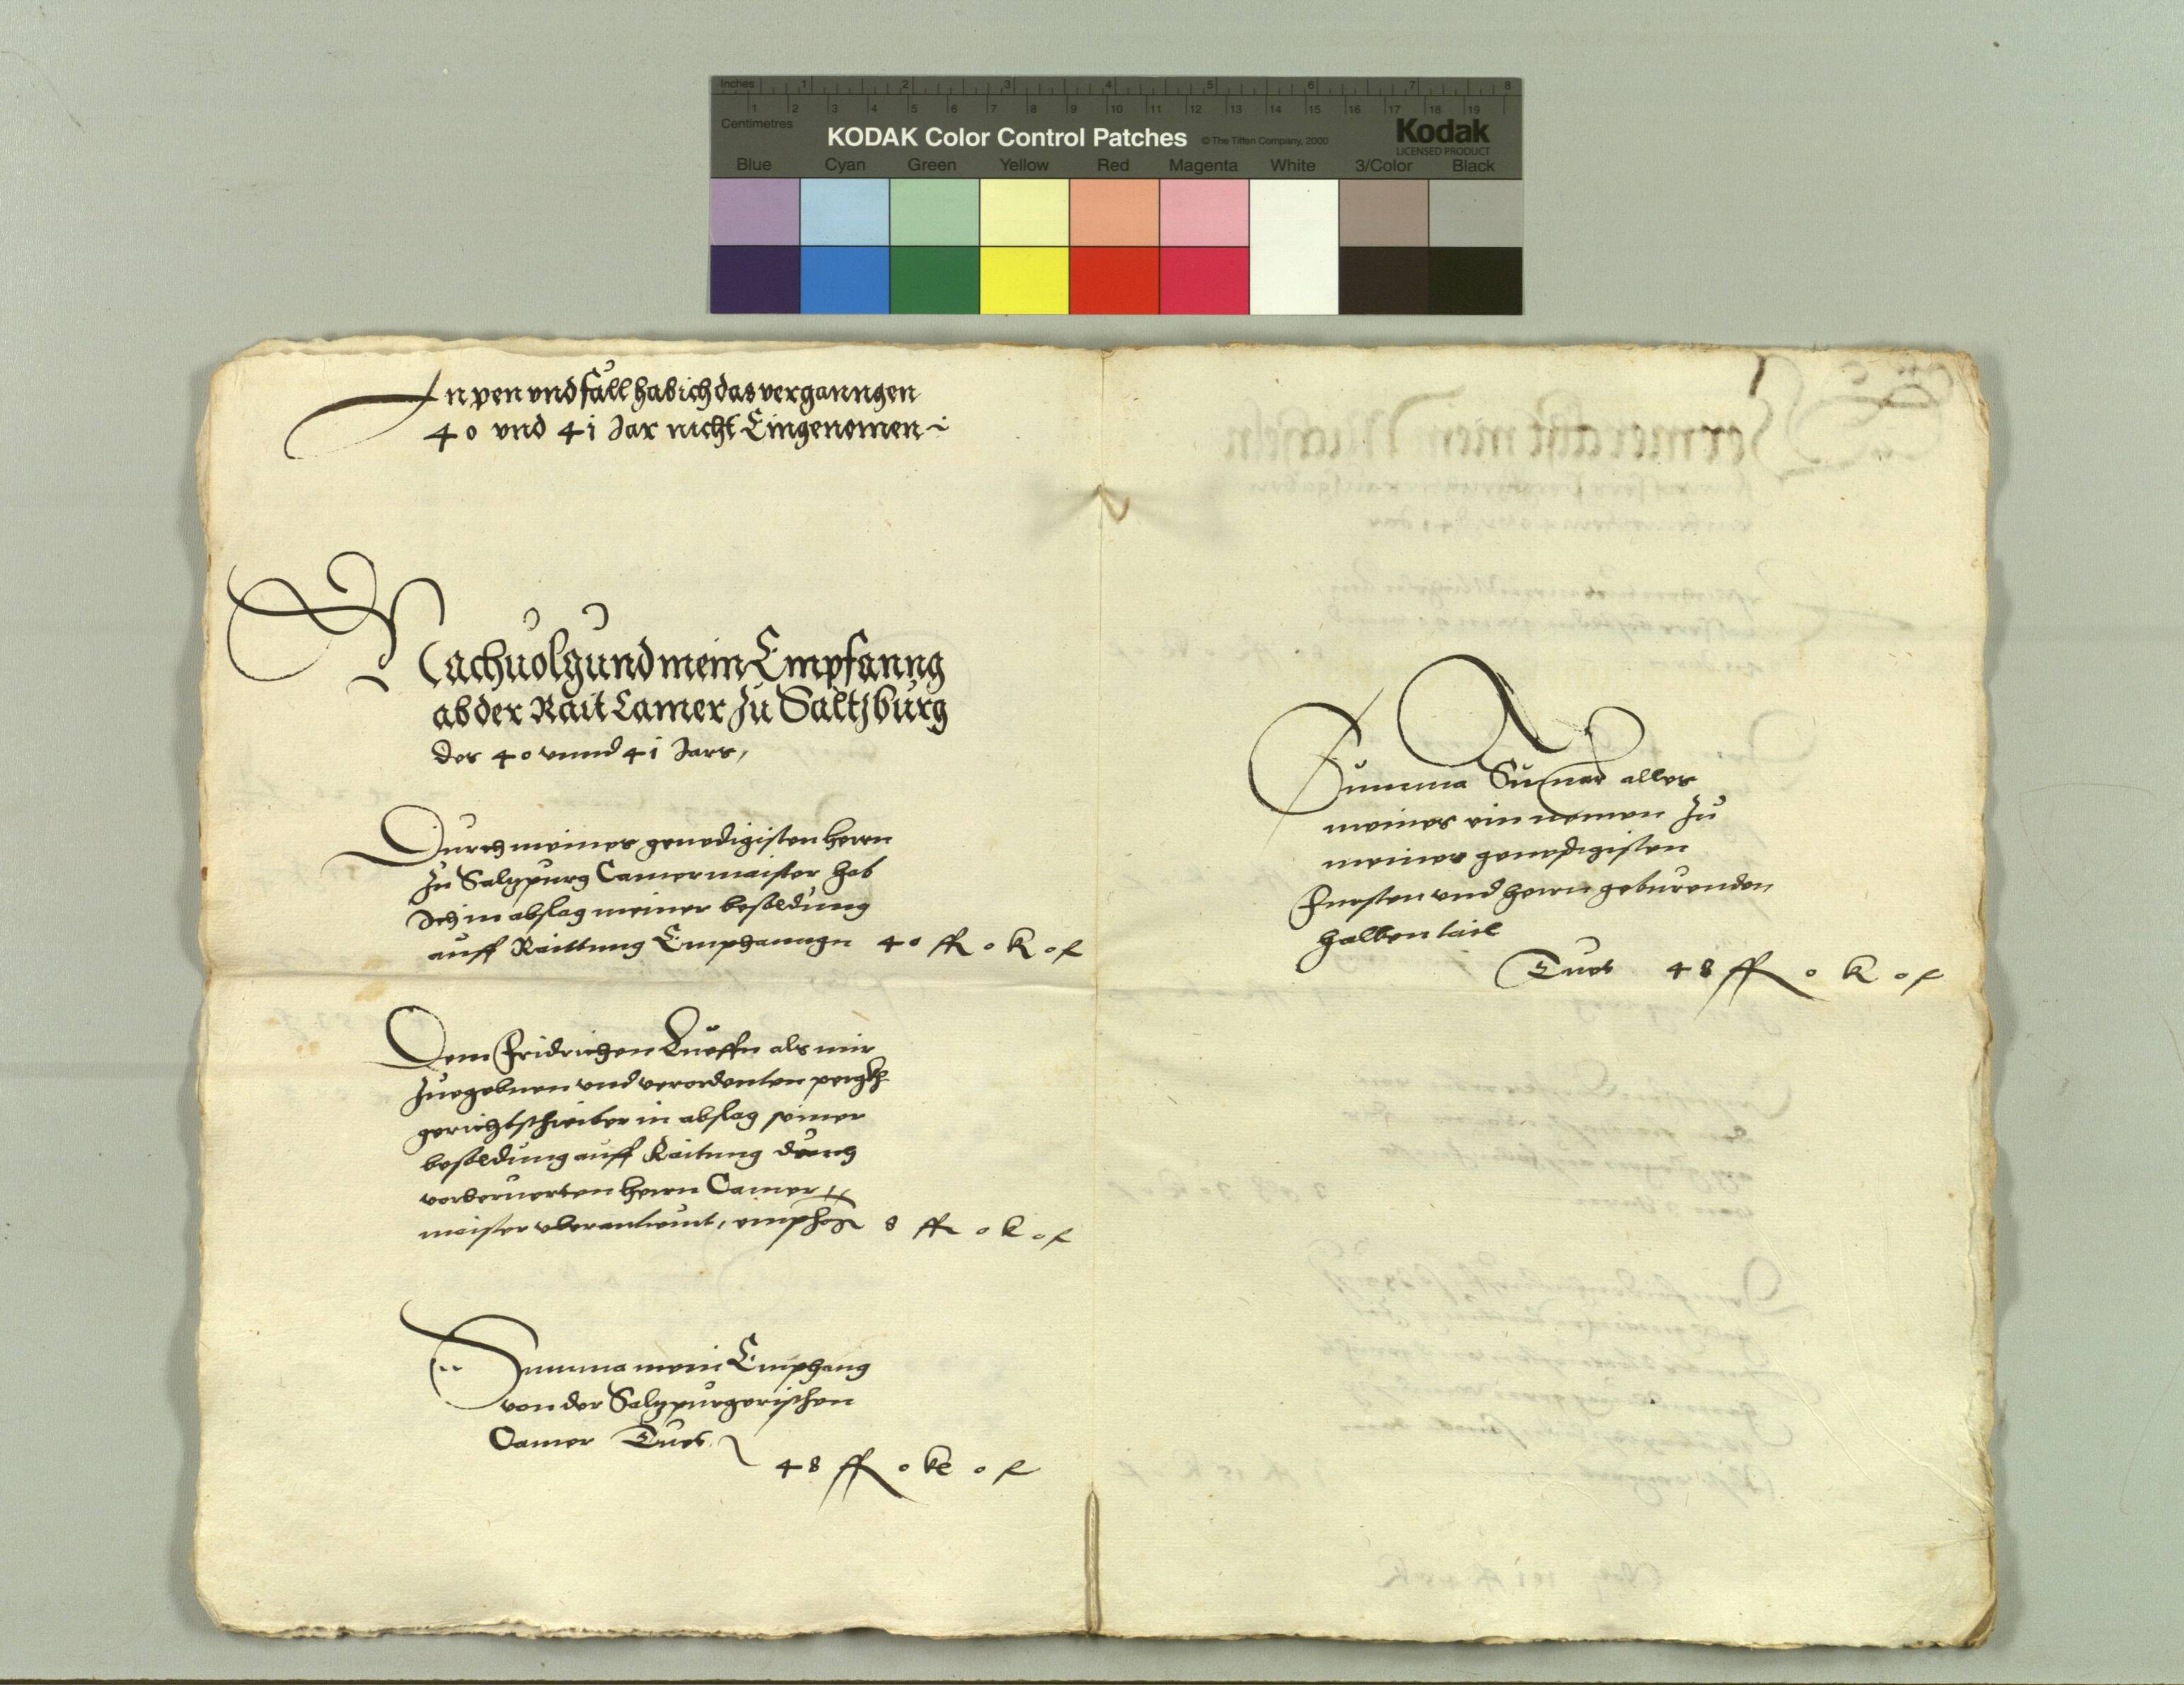 Inches 1 2 3 4 5 6 7 8
1 2 3 4 5 6 7 8 9 10 11 12 13 14 15 16 17 18 19
Centimetres
KODAK Color Control Patches © The Tiffen Company, 2000 Kodak
LICENSED PRODUCT
Blue Cyan Green Yellow Red Magenta White 3/Color Black
In pen vnd fäll hab ich das verganngen
40 vnd 41 Jar nicht Eingenomen
Nachuolgund mein Empfanng
ab der Rait Camer zu Saltzburg
des 40 vnnd 41 Jars,
Durch meines genedigisten herrn
zu Salzpurg Camermaister hab
Ich in abslag meiner besoldung
auff Raittung Emphanngn 40 fl 0 k 0 f
Dem Fridrichen als mir
zuegebnen vnd verordenten pergkh
gerichtschreiber in abslag seiner
besoldung auff Raitung durch
vorberuerten herrn Camer
maister vberantwurt, 8 fl 0 k 0 f
Summa mein Emphang
von der Salzpurgerischen
Camer Tuet
48 fl 0 ke 0 f
Summa Sumar alles
meines ein nemen zu
meines genedigisten
Fursten vnd herrn geburenden
halben tail
Tuet 48 fl 0 k 0 f